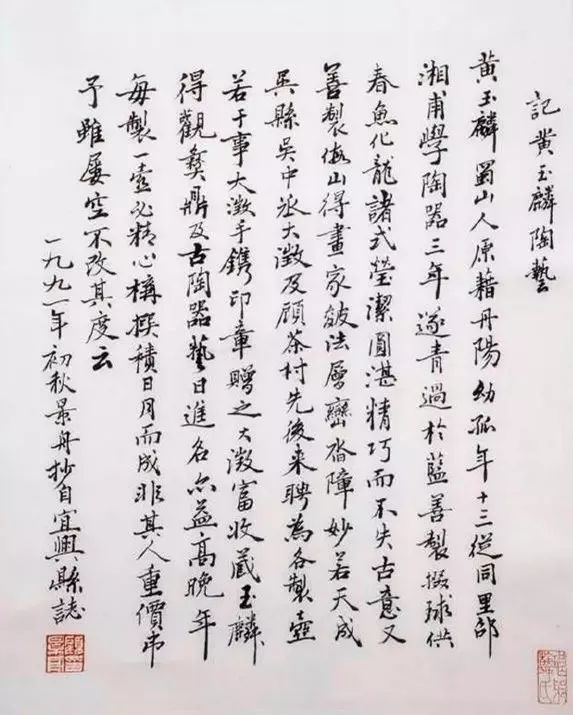 記黄玉麟陶藝
黄玉麟蜀山人原籍丹陽幼孤年十三從同里邵
湘甫學陶器三年遂青過於藍善製掇球供
春魚化龍諸式瑩潔圓湛精巧而不失古意又
善製假山得畫家皴法層巒沓障妙若天成
吳縣吳中丞大澂及顧茶村先後来聘為各製壺
若干事大澂手鐫印章贈之大澂富收蔵玉麟
得觀彝鼎及古陶器藝日進名亦益高晚年
每製一壺必精心構撰積日月而成非其人重價弗
予雖屢空不改其度云
一九九一年初秋景舟抄自宜興縣誌